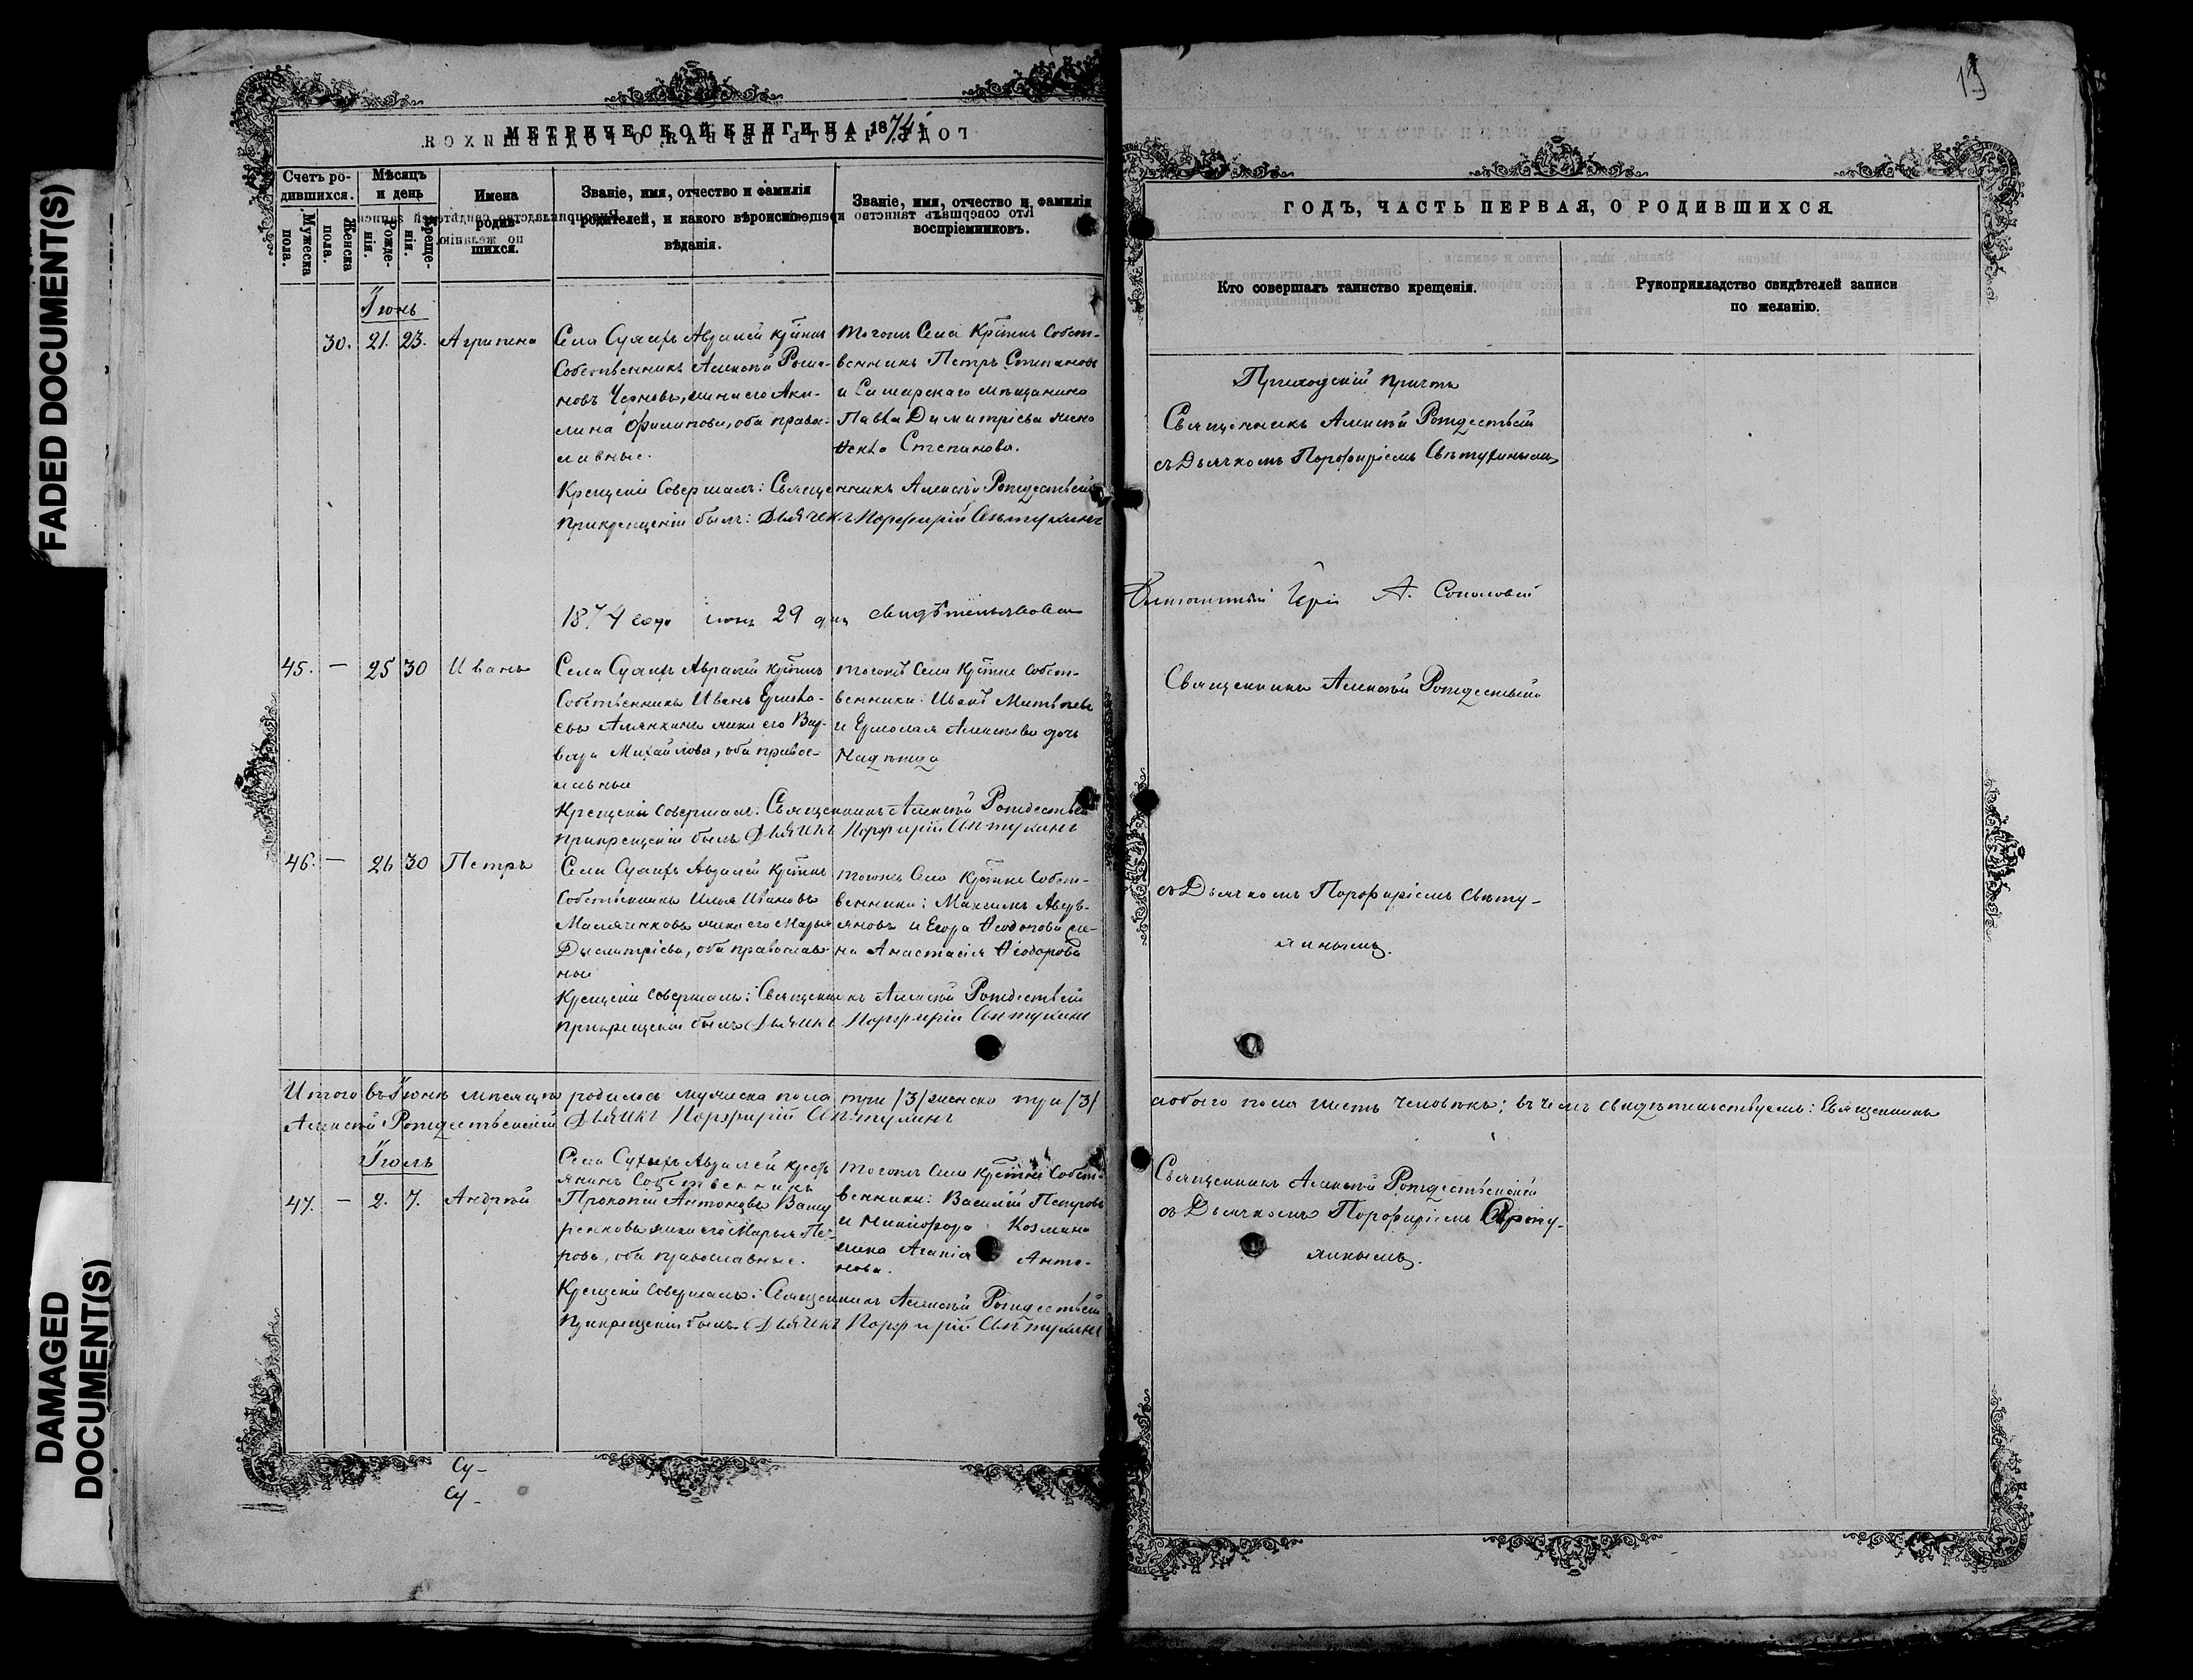 FADED DOCUMENT(S)
DAMAGED DOCUMENT(S)
МЕТРИЧЕСКОЙ КНИГИ НА 1874
Счетъ ро-
дившихся.
Мужеска пола.
Женска пола.
Мѣсяцъ
и день
Рожде-
нія.
Креще-
нія.
Имена
родив-
шихся.
Званіе, имя, отчество и фамилія
родителей, и какого вѣроиспо-
вѣданія.
Званіе, имя, отчество и фамилія
воспріемниковъ.
Іюнь
30. 21. 23. Агрипена
Села Сухихъ Авзалей
Собственникъ Алексѣй Рома-
новъ Черновъ, жена его Аку-
лина Филипова, оба право-
славные.
тогожъ Села Собст-
венникъ Петръ Степановъ
и Самарскаго мѣщанина
Павла Димитріева жена
Ѳекла Степанова.
Крещеніе Совершалъ: Священникъ Алексѣй Рождественскій
При крещеніи былъ: Дьячекъ Порфирій
1874 года іюня 29 дня свидѣтельствовалъ
45. — 25 30 Иванъ
Села Сухихъ Авзалей
Собственникъ Иванъ Ермола-
евъ жена его Вар-
вара Михайлова, оба право-
славные
тогожъ Села Собст-
венники: Иванъ Матвѣевъ
и Ермолая Алексѣева дочь
Надежда
Крещеніе Совершалъ: Священникъ Алексѣй Рождественскій
При крещеніи былъ Дьячекъ Порфирій
46. — 26 30 Петръ
Села Сухихъ Авзалей
Собственникъ Илья Ивановъ
жена его Марья
Дмитріева, оба православ-
ные
тогожъ Села Собст-
венники: Максимъ Аверь-
яновъ и Егора Ѳедотова же-
на Анастасія Ѳеодорова
Крещеніе Совершалъ: Священникъ Алексѣй Рождественскій
При крещеніи былъ Дьячекъ Порфирій
Итого въ Іюнѣ мѣсяцѣ родилось мужеска пола три /3/ женска три /3/
Алексѣй Рождественскій Дьячекъ Порфирій
Іюль
47. — 2. 7. Андрей
Села Сухихъ Авзалей кресть-
янинъ Собственникъ
Прокопій Антоновъ
жена его Марья Пет-
рова, оба православные.
тогожъ Села Собст-
венники: Василій Петровъ
и Никифора Козмина
жена Агапія Анто-
нова.
Крещеніе Совершалъ: Священникъ Алексѣй Рождественскій
При крещеніи былъ Дьячекъ Порфирій
Су-
Су-
13
ГОДЪ, ЧАСТЬ ПЕРВАЯ, О РОДИВШИХСЯ.
Кто совершалъ таинство крещенія.
Рукоприкладство свидѣтелей записи
по желанію.
Приходскій причтъ
Священникъ Алексѣй Рождественскій
съ Дьячкомъ Порфиріемъ
А. Соколовъ
Священникъ Алексѣй Рождественскій
съ Дьячкомъ Порфиріемъ
обоего пола шесть человѣкъ; въ чемъ свидѣтельствуемъ: Священникъ
Священникъ Алексѣй Рождественскій
съ Дьячкомъ Порфиріемъ